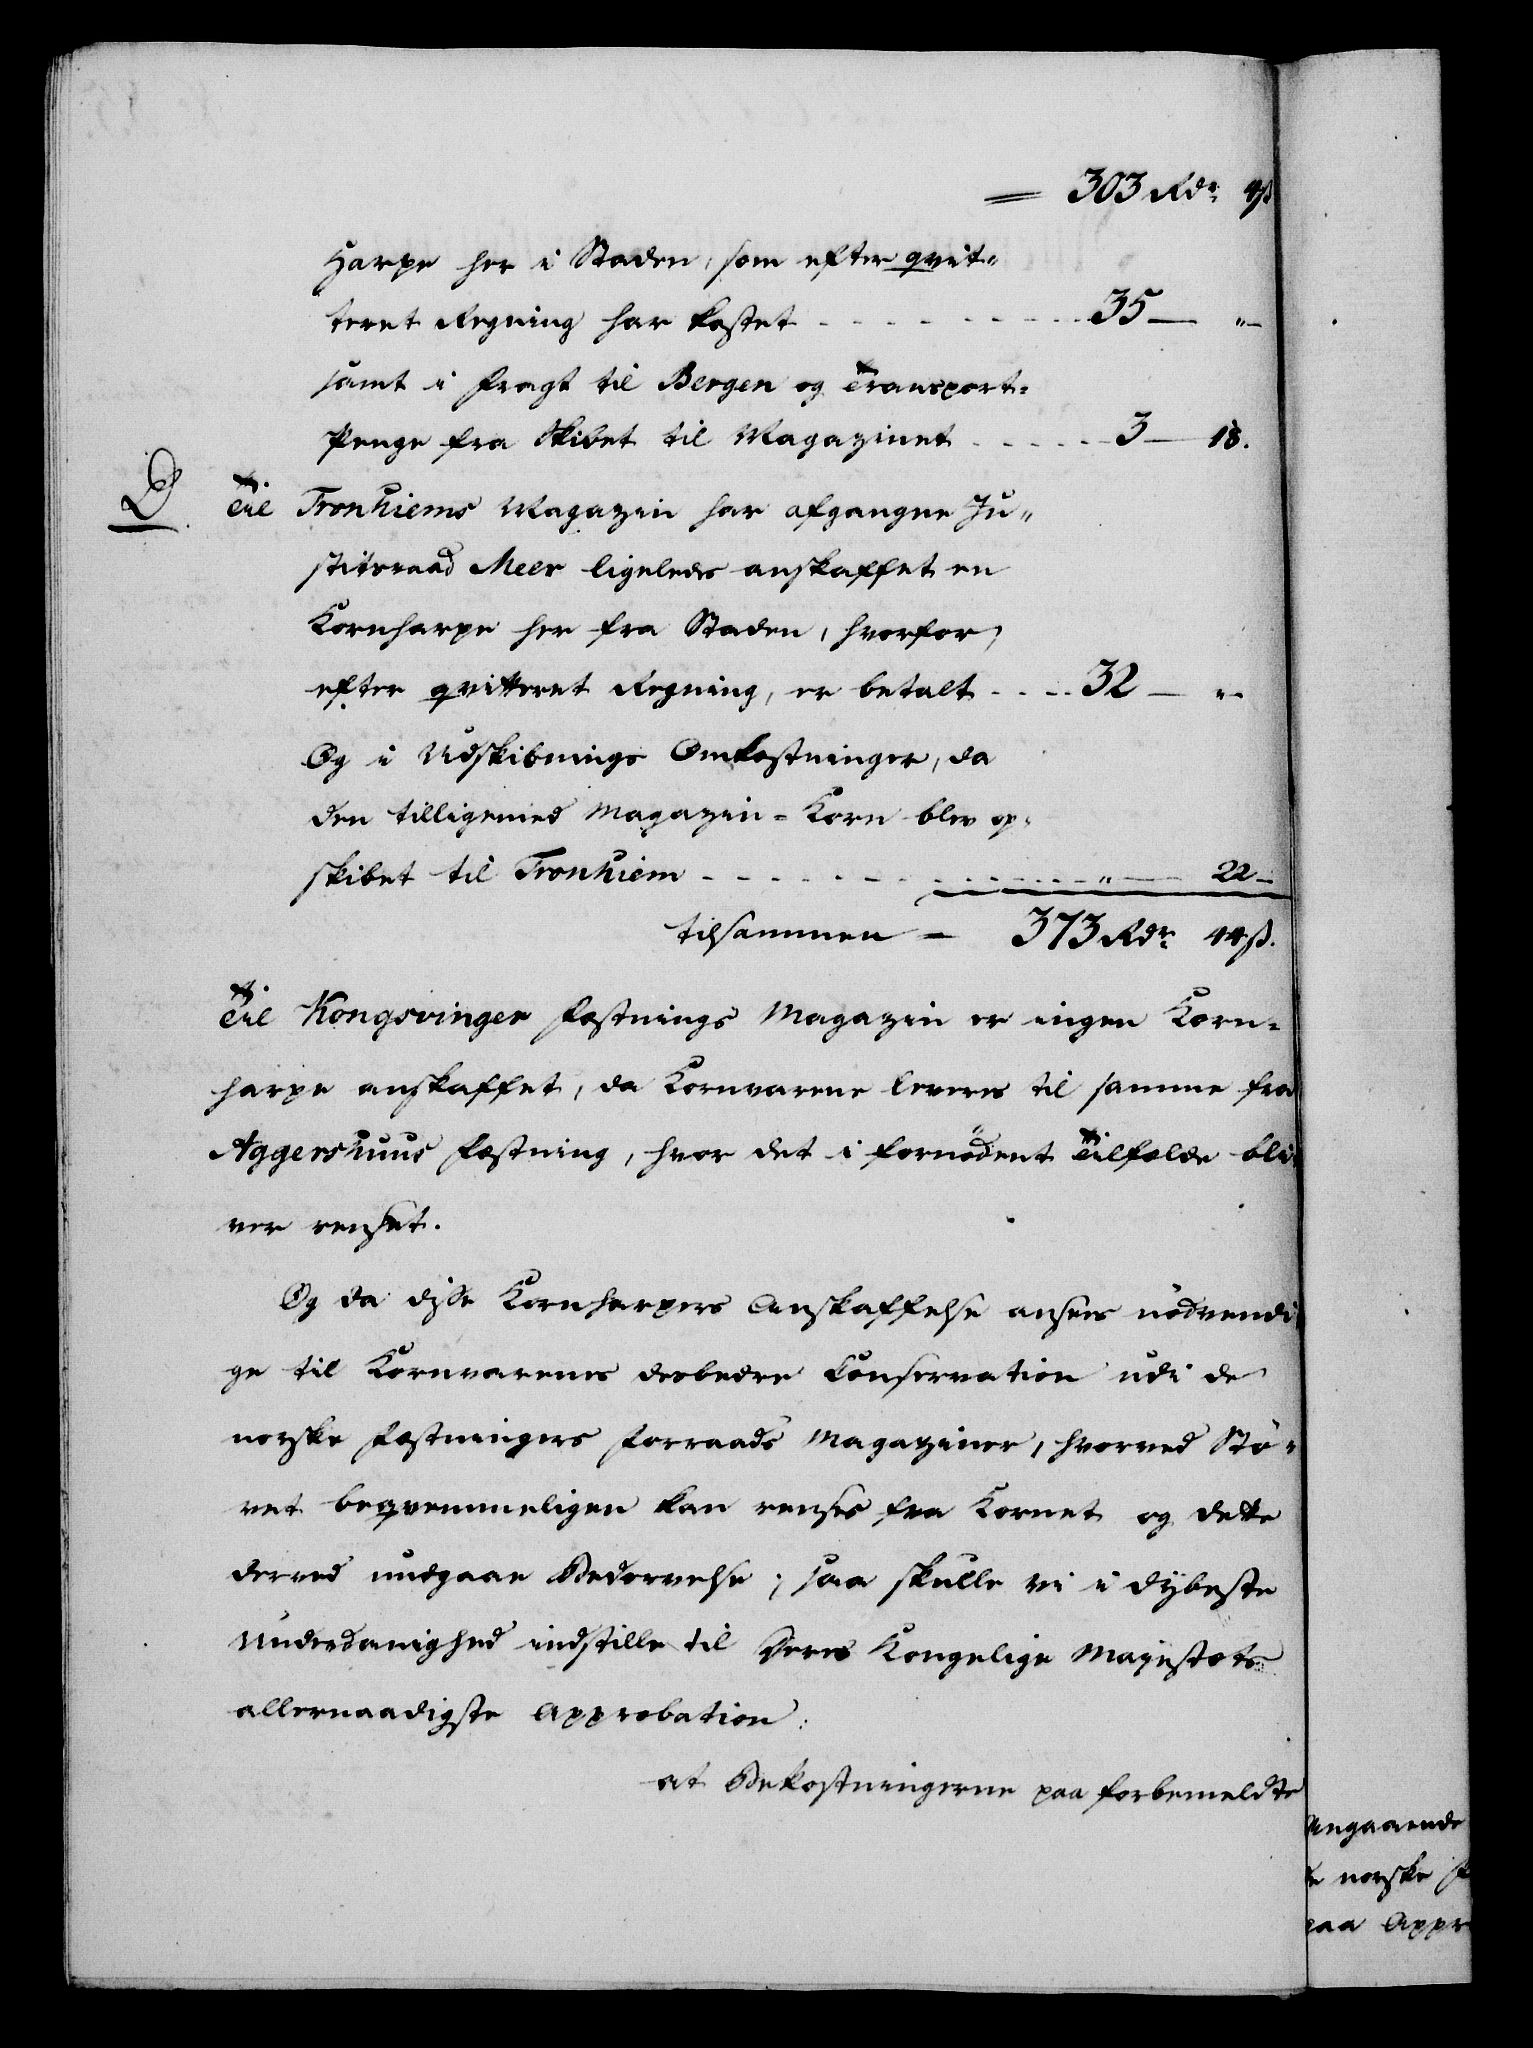 = 303 Rdr 4ß
Harpe her i Staden, som efter qvit-
teret Regning har kostet - - - - - - - - - 35 — "—
samt i Fragt til Bergen og Transport-
Penge fra Skibet til Magazinet - - - - - - 3 — 18.
D. Til Tronhiems Magazin har afgangne Ju-
stitsraad Meer ligeledes anskaffet en
Kornharpe her fra Staden, hvorfor,
efter qvitteret Regning, er betalt - - - - 32 — "—
Og i Udskibnings Omkostninger, da
den tilligemed Magazin-Korn blev op-
skibet til Tronhiem - - - - - - - - - - - - " — 22 —
tilsammen — 373 Rdr 44ß.
Til Kongsvinger Fæstnings Magazin er ingen Korn-
harpe anskaffet, da Kornvarene leveres til samme fra
Aggershuus Fæstning, hvor det i fornødent Tilfælde bli-
ver renset.
Og da disse Kornharpers Anskaffelse ansees nødvendi-
ge til Kornvarenes desbedre Conservation udi de
norske Fæstningers Forraads Magaziner, hvorved Stø-
vet beqvemmeligen kan renses fra Kornet og dette
derved undgaae Bedærvelse; saa skulle vi i dybeste
Underdanighed indstille til Deres Kongelige Majestæts
allernaadigste Approbation:
at Bekostningerne paa forbemeldte
Angaaende
norske
paa Appr